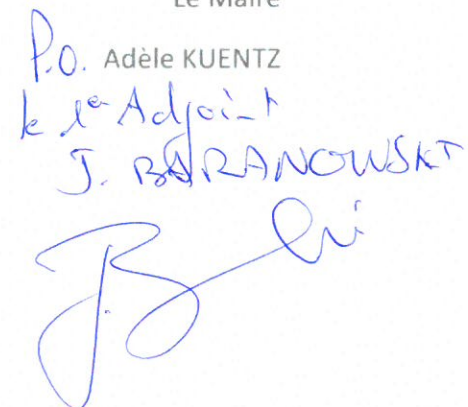 Le Maire
P.O. Adèle KUENTZ
le 1er Adjoint
J. BARANOWSKI